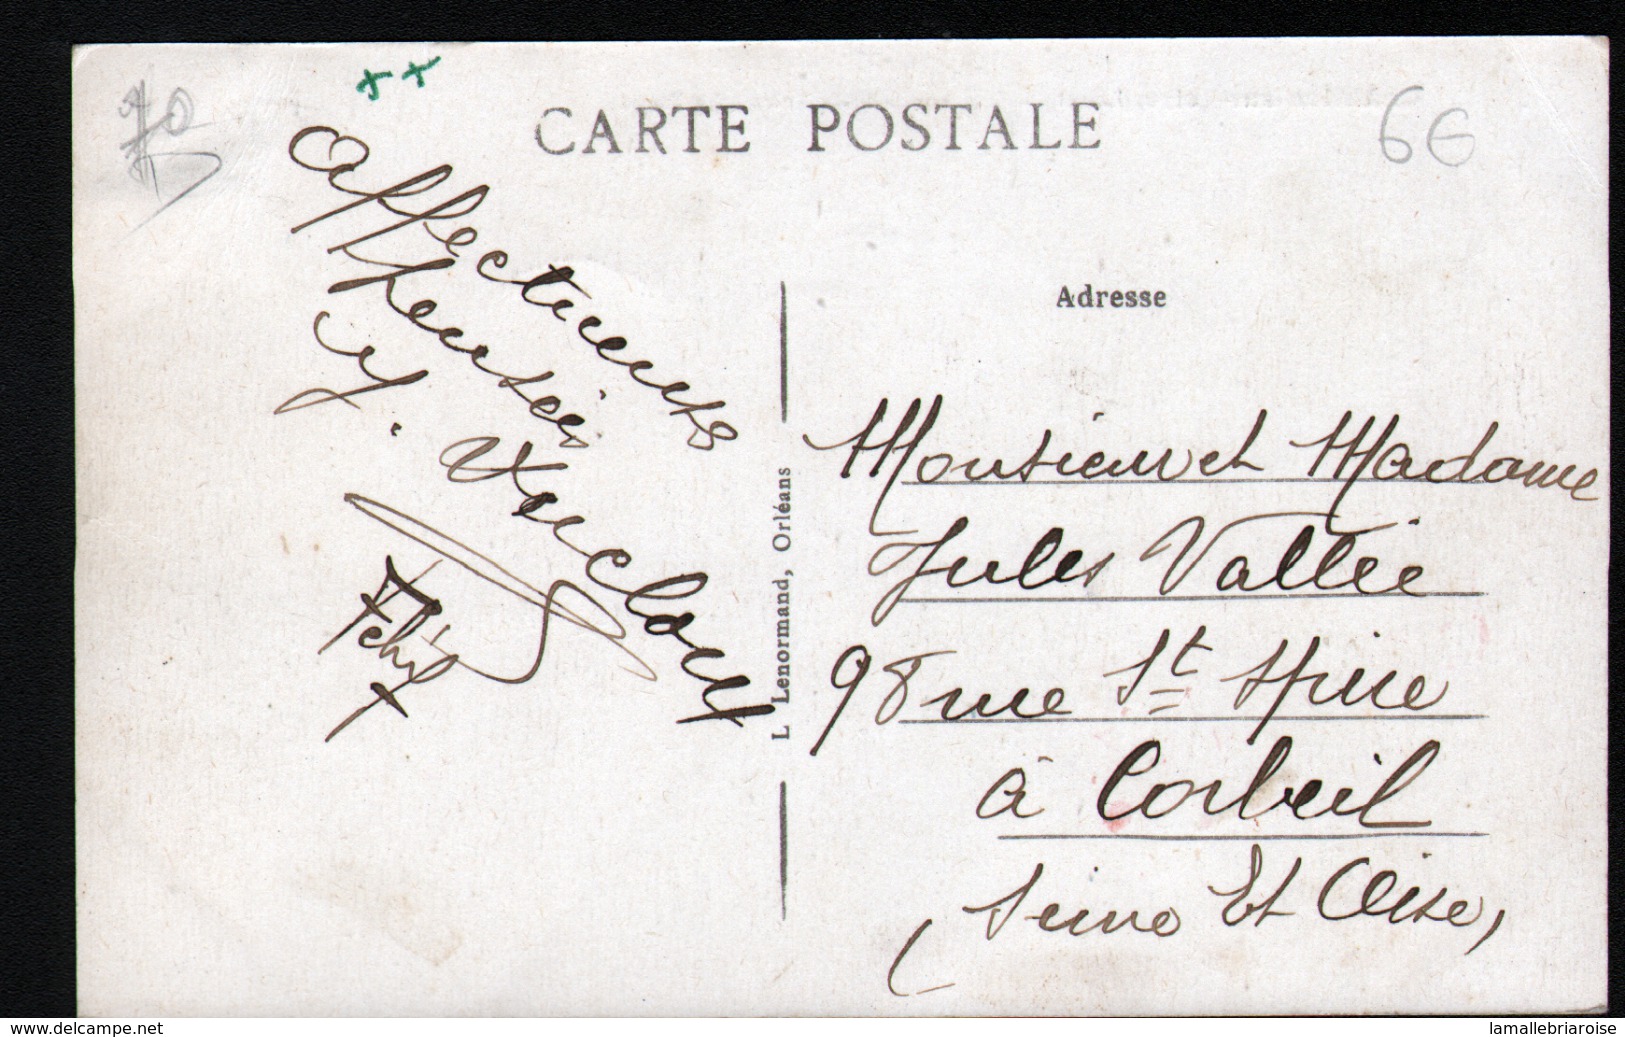 70
++
CARTE POSTALE
6€
Affectueuses
Pensées
Adresse
Monsieur et Madame
Jules Vallée
98 rue St Spire
à Corbeil
(Seine Et Oise)
L. Lenormand, Orléans
www.delcampe.net
lamallebriaroise